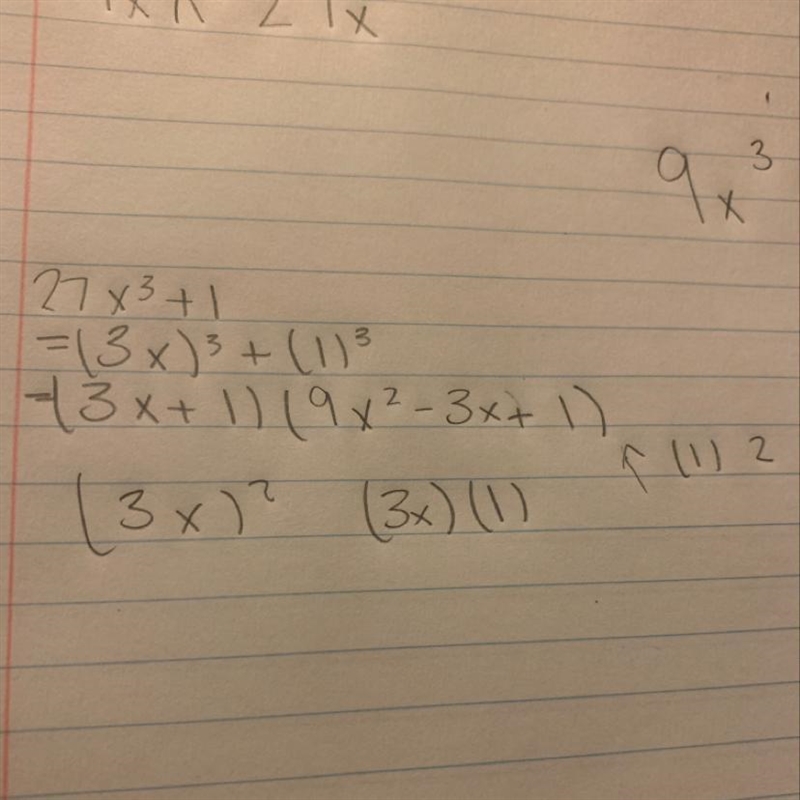 9x³
27x³+1
=(3x)³+(1)³
=(3x+1)(9x²-3x+1)
↖(1)2
(3x)² (3x)(1)